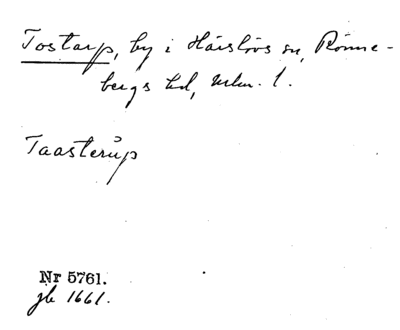 Tostarp, by i Härslövs sn, Rönne-
bergs hd, Mlm. l.
Taasterŭp
Nr 5761.
jb 1661.